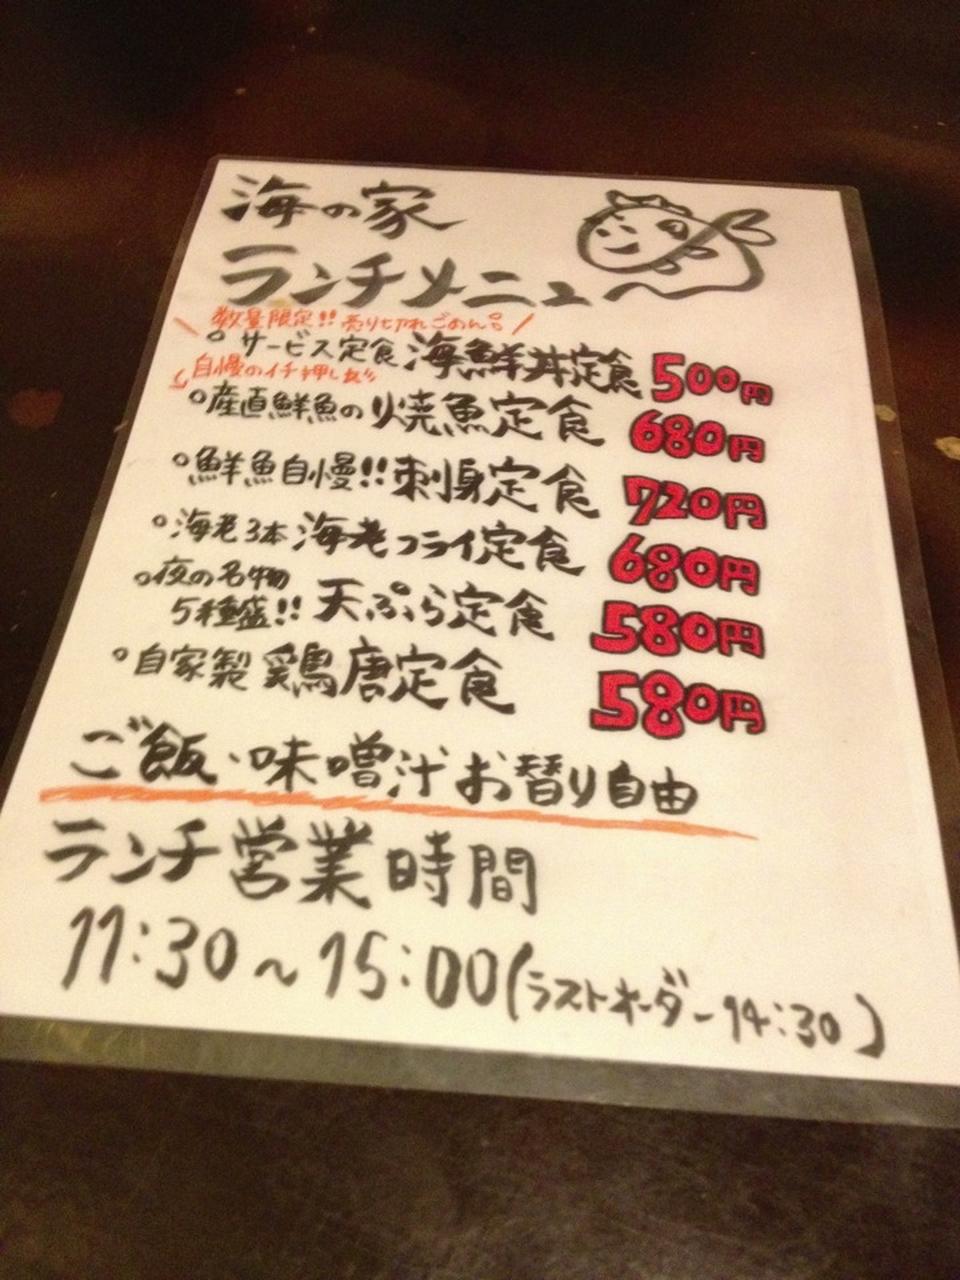 海の家
ランチメニュー
数量限定!!売り切れごめん。
。サービス定食 海鮮丼定食 500円
自慢のイチ押し
。産直鮮魚の 焼魚定食 680円
。鮮魚自慢!!刺身定食 720円
。海老3本 海老フライ定食 680円
。夜の名物
5種盛!! 天ぷら定食 580円
。自家製 鶏唐定食 580円
ご飯・味噌汁お替り自由
ランチ営業時間
11:30〜15:00(ラストオーダー14:30)